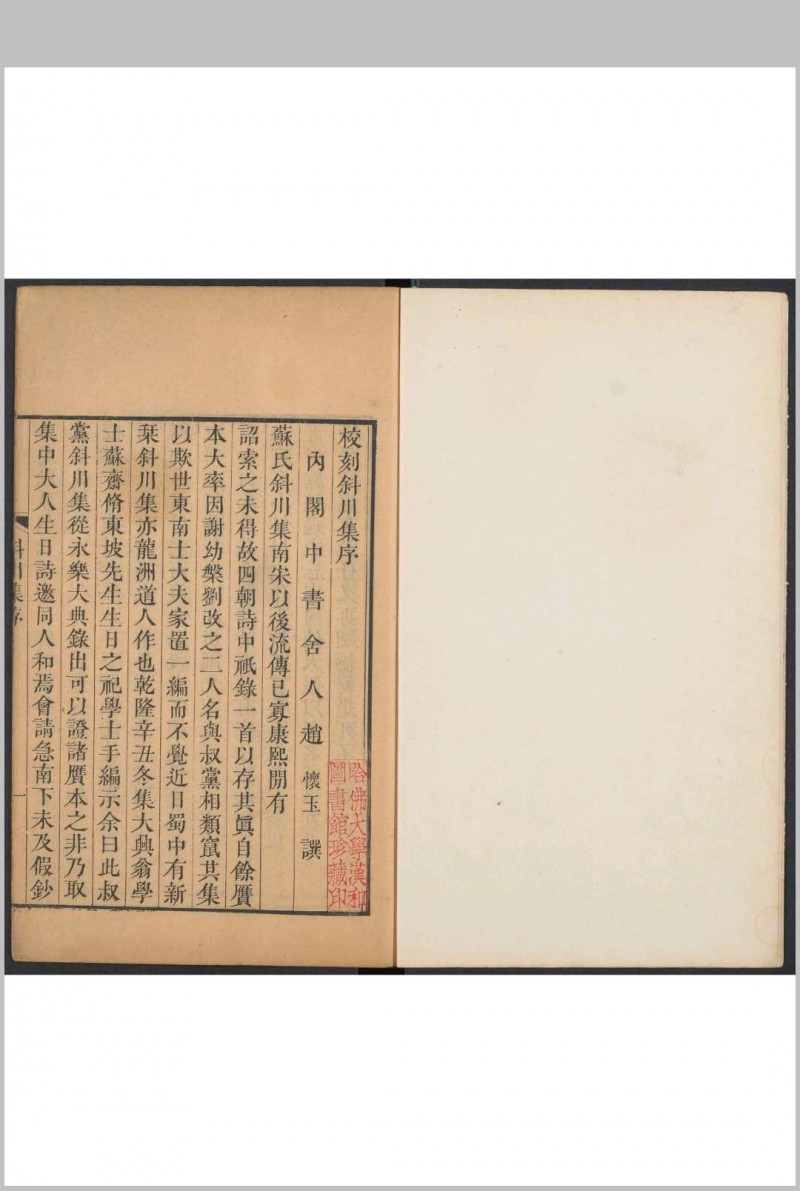 校刻斜川集序
內閣中書舍人趙懷玉譔
蘇氏斜川集南宋以後流傳已寡康熙閒有
詔索之未得故四朝詩中祇錄一首以存其眞自餘贋
本大率因謝幼槃劉改之二人名與叔黨相類竄其集
以欺世東南士大夫家置一編而不覺近日蜀中有新
栞斜川集亦龍洲道人作也乾隆辛丑冬集大興翁學
士蘇齋脩東坡先生生日之祀學士手編示余曰此叔
黨斜川集從永樂大典錄出可以證諸贋本之非乃取
集中大人生日詩邀同人和焉會請急南下未及假鈔
斜川集序
一
哈佛大學漢和
圖書館珍藏印